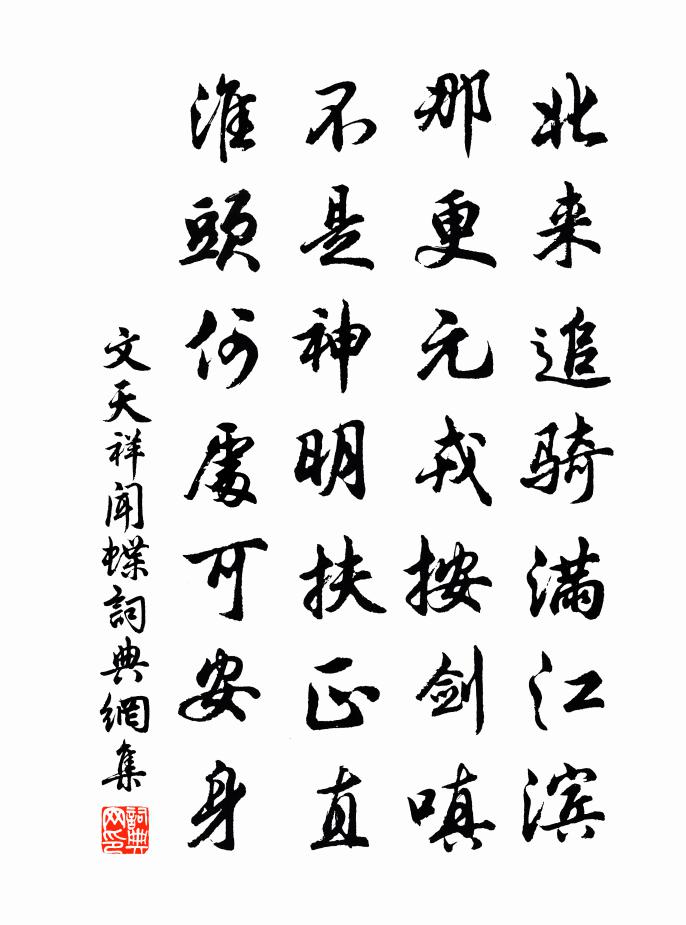 北来追骑满江滨
那更元戎按剑嗔
不是神明扶正直
淮頭何處可安身
文天祥聞蝶詞典網集
詞典网印